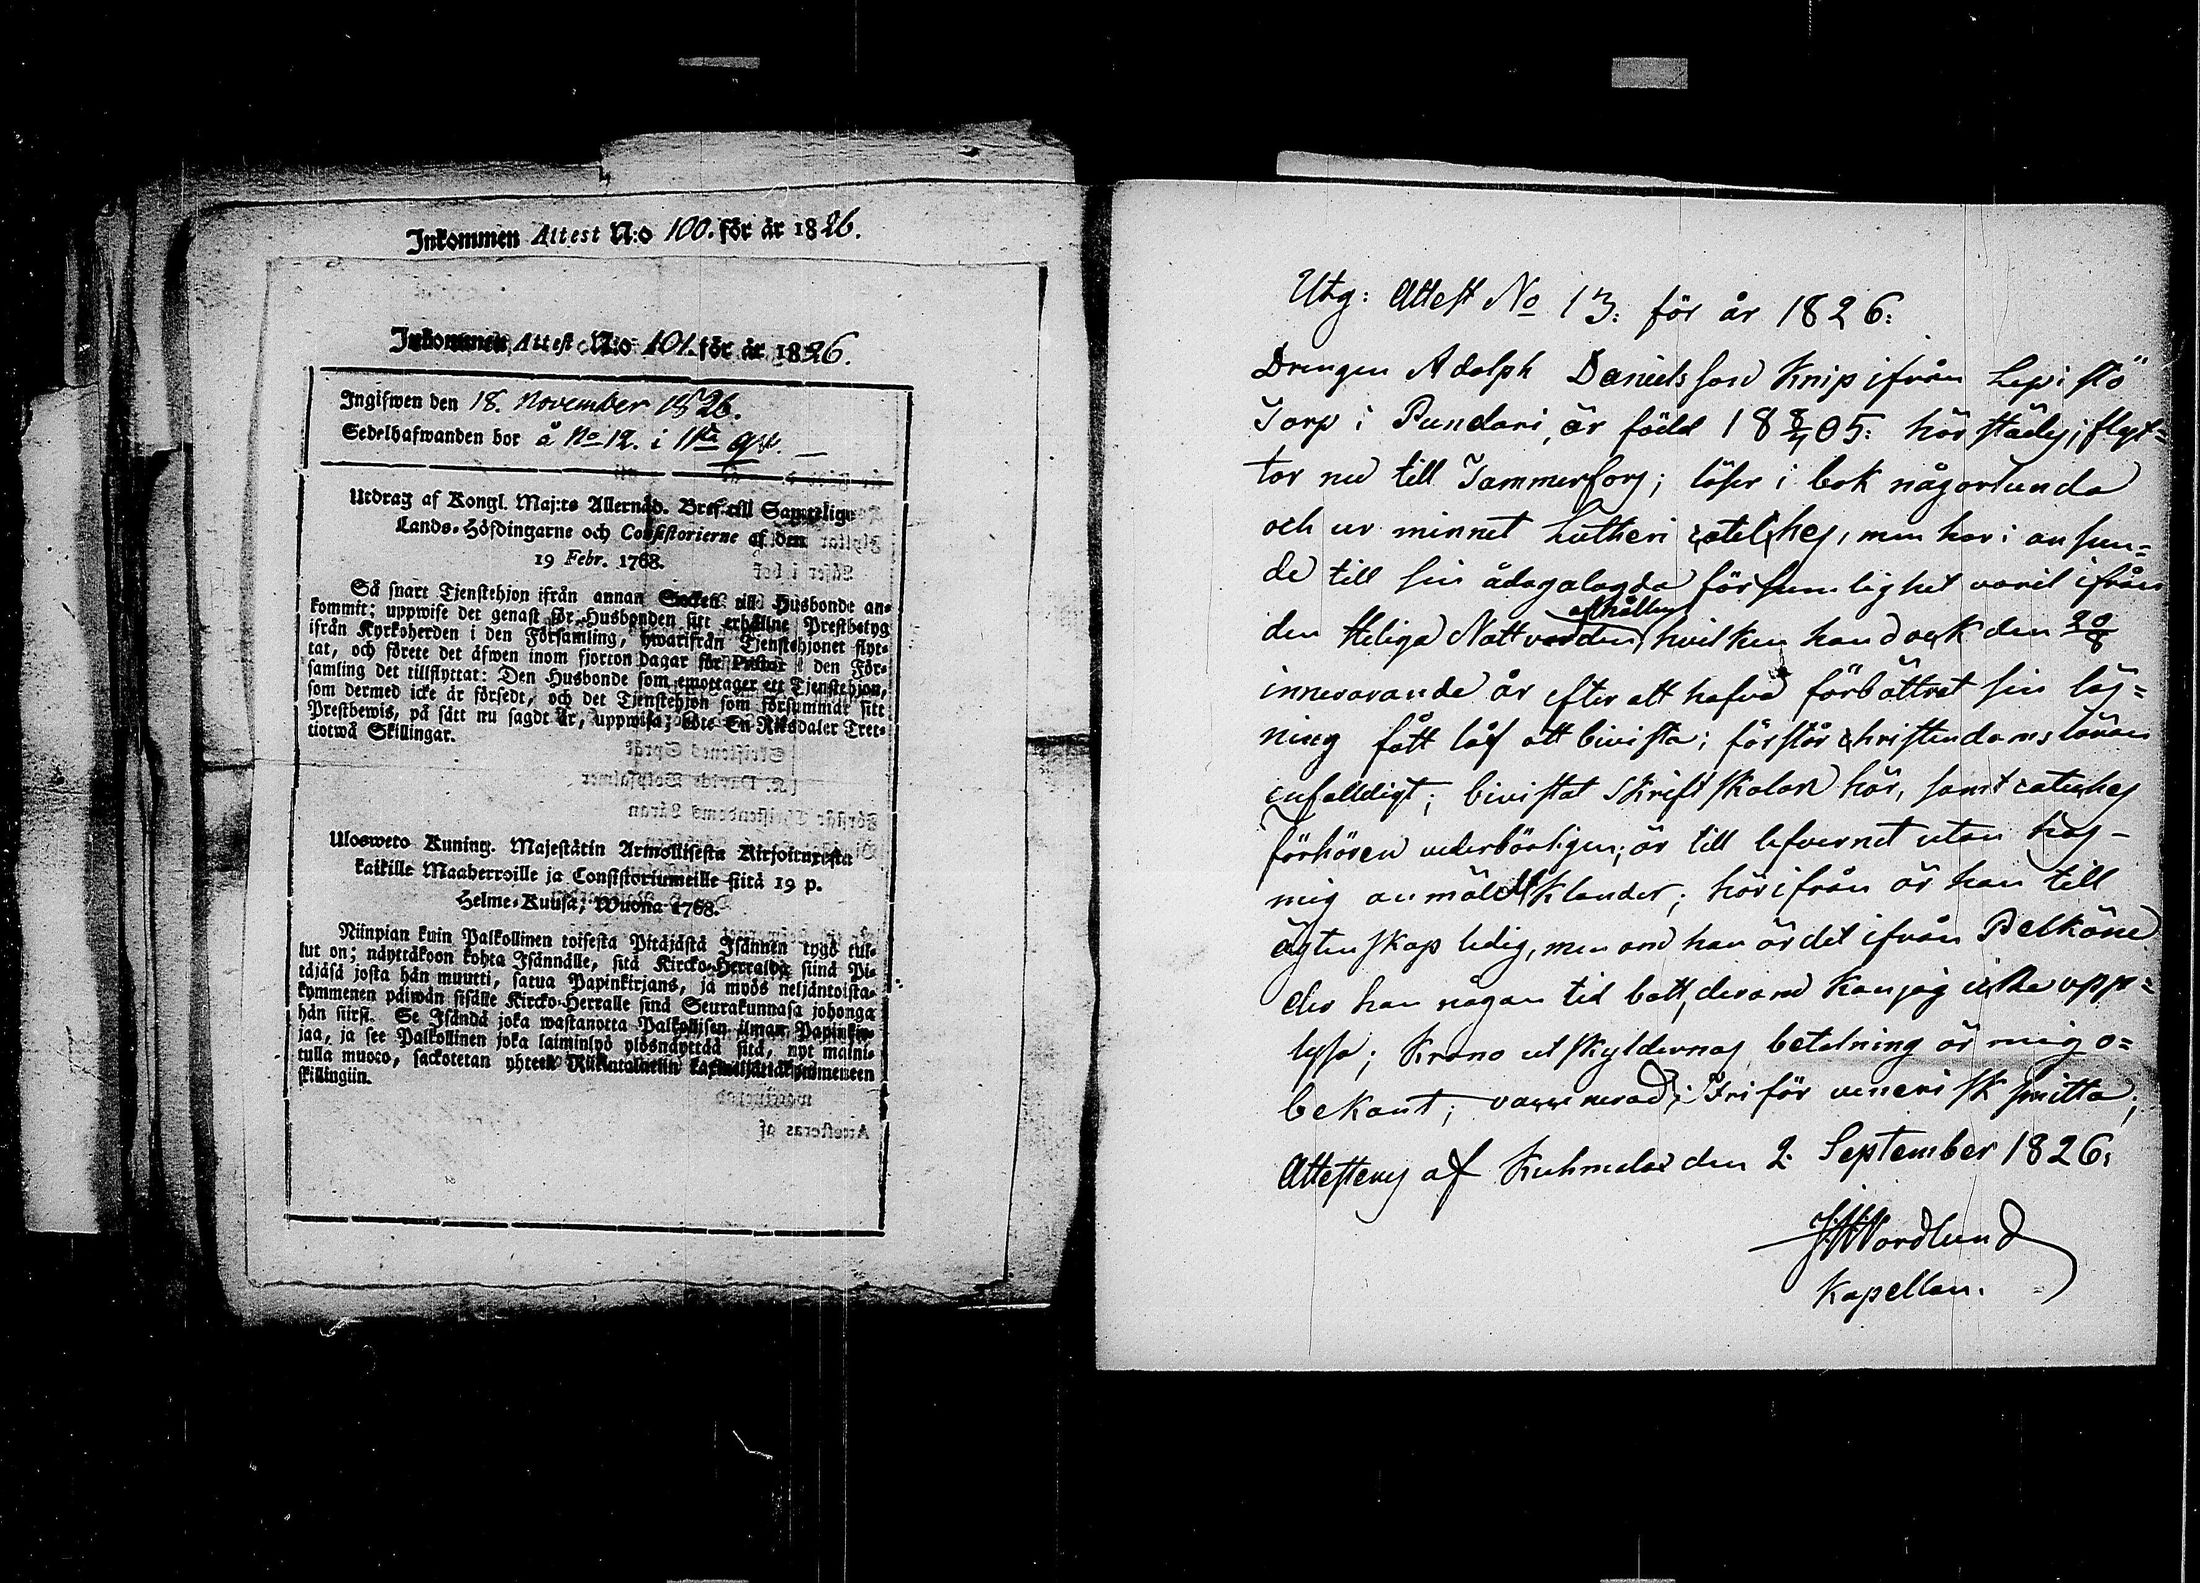 Inkommen Attest N:o 100. för år 1826.
Inkommen Attest N:o 101. för år 1826.
Ingifwen den 18. November 1826.
Sedelhafwanden bor å No 12. i 1sta qv.
Utdrag af Kongl. Maj:ts Allernåd. Bref till Samtelige
Lands-Höfdingarne och Consistorierne af den
19 Febr. 1768.
Så snart Tjenstehjon ifrån annan Socken till Husbonde an-
kommit; uppwise det genast för Husbonden sitt erhållne Prestbetyg
ifrån Kyrkoherden i den Församling, hwarifrån Tjenstehjonet flyt-
tat, och förete det äfwen inom fjorton dagar för Pastor i den För-
samling det tillflyttat: Den Husbonde som emottager ett Tjenstehjon,
som dermed icke är försedt, och det Tjenstehjon som försummar sitt
Prestbewis, på sätt nu sagdt är, uppwisa; böte En Riksdaler Tret-
tiotwå Skillingar.
Ulosweto Kuning. Majestätin Armollisesta Kirjoituxesta
kaikille Maaherroille ja Consistoriumeille siitä 19 p.
Helme-Kuusa, Wuona 1768.
Niinpian kuin Palkollinen toisesta Pitäjästä Isännen tygö tul-
lut on; näyttäkoon kohta Isännälle, sitä Kircko-Herralda siinä Pi-
täjäsä josta hän muutti, saatua Papinkirjans, ja myös neljäntoista-
kymmenen päiwän sisälle Kircko-Herralle siinä Seurakunnasa johonga
hän siirsi. Se Isändä joka wastanotta Palkollisen ilman Papinkir-
jaa, ja see Palkollinen joka laiminlyö ylösnäyttää sitä, nyt maini-
tulla muoto, sackotetan yhteen Riikintalariin kaxineljättäkymmeneen
skillingiin.
Utg: Attest No 13: för år 1826:
Drengen Adolph Danielsson Knip ifrån Lepistö
Torp i Pundari, är född 18 8/4 05: härstädes, flyt=
tar nu till Tammerfors; läser i bok någorlunda
och ur minnet Lutheri cateches, men har i ansen=
de till sin ådagalagda försumlighet varit ifrån
den Heliga Nattvarden afhållen, hvilken han dock den 20/8
innevarande år efter att hafva förbättrat sin läs=
ning fått låf att bivista; förstår christendoms läran
enfalldigt; bivistat Skriftskolan här, samt cateches
förhören vederbörligen; är till lefvernet utan hos
mig anmäldt klander; härifrån är han till
ägtenskap ledig, men om han är det ifrån Pelkäne
der han någon tid bott, derom kan jag icke upp=
lysa; Krono utskyldernas betalning är mig o=
bekant; vaccinerad; Fri för venerisk smitta;
Attesteras af Kuhmalax den 2. September 1826:
Nordlund
Kapellan.